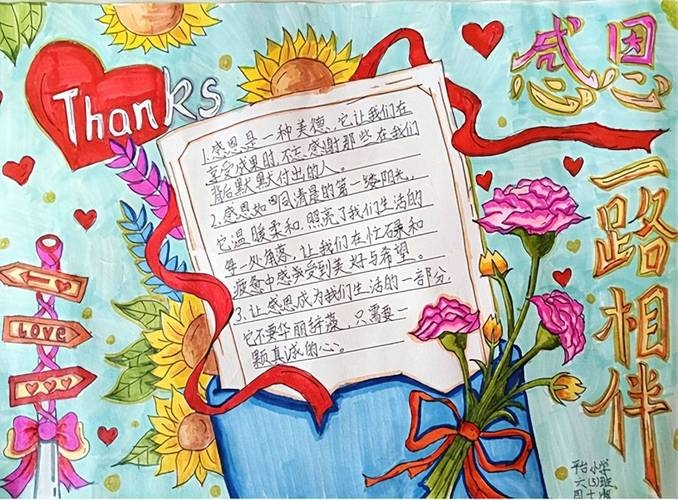 Thanks
感恩
一路相伴
1.感恩是一种美德、它让我们在
享受成果时,不忘感谢那些在我们
背后默默付出的人。
2.感恩如同清晨的第一缕阳光,
它温暖柔和.照亮了我们生活的
每一处角落,让我们在忙碌和
疲惫中感受到美好与希望。
3.让感恩成为我们生活的一部分.
它不要华丽辞藻、只需要一
颗真诚的心。
LOVE
平台小学
六(3)班